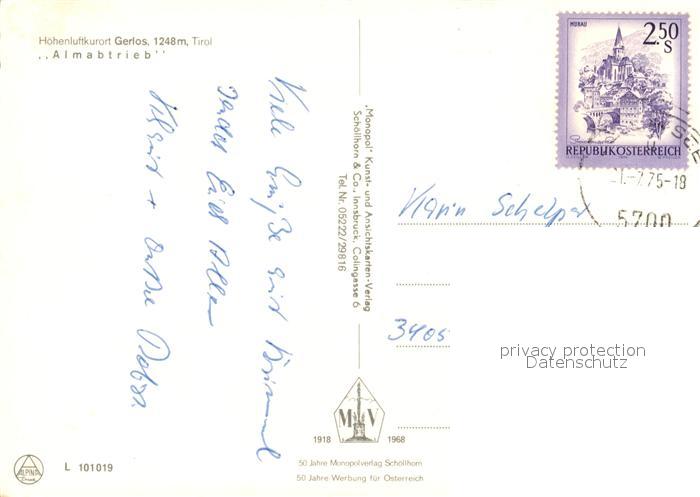 Höhenluftkurort Gerlos, 1248m, Tirol
,,Almabtrieb''
Viele Grüße aus
sendet Euch Allen
+
„Monopol" Kunst- und Ansichtskarten-Verlag
Schöllhorn & Co., Innsbruck, Colingasse 6
Tel. Nr. 05222/29816
MURAU
2.50
S
REPUBLIK ÖSTERREICH
SEE
-7.75-18
5700
Karin
3405
privacy protection
Datenschutz
M V
1918 1968
50 Jahre Monopolverlag Schöllhorn
50 Jahre Werbung für Österreich
ALPINA
Druck
L 101019